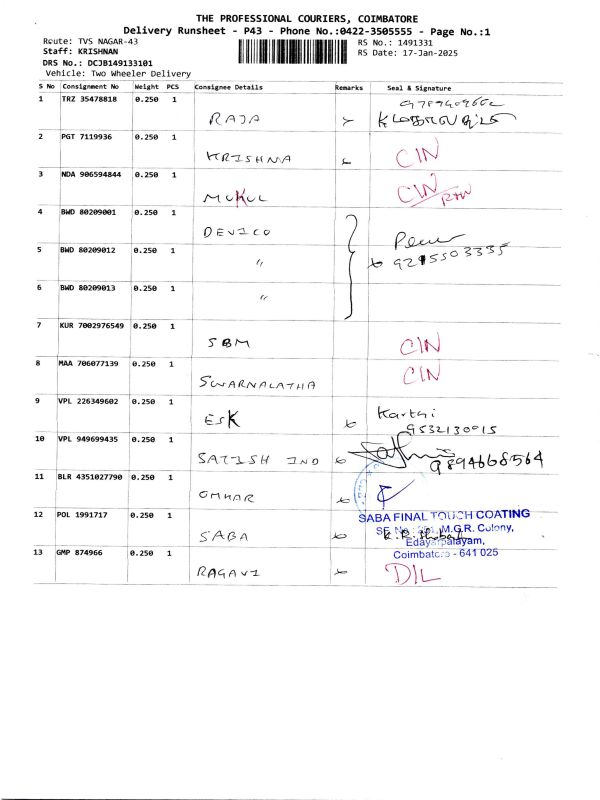 THE PROFESSIONAL COURIERS, COIMBATORE
Delivery Runsheet - P43 - Phone No.:0422-3505555 - Page No.:1
Route: TVS NAGAR-43
RS No.: 1491331
Staff: KRISHNAN
RS Date: 17-Jan-2025
DRS No.: DCJB149133101
Vehicle: Two Wheeler Delivery
S No Consignment No Weight PCS Consignee Details Remarks Seal & Signature
1 TRZ 35478818 0.250 1
RAJA
2 PGT 7119936 0.250 1
KRISHNA CIN
3 NDA 906594844 0.250 1
MUKUL CIN
4 BWD 80209001 0.250 1
DEVICO
5 BWD 80209012 0.250 1
"
6 BWD 80209013 0.250 1
"
7 KUR 7002976549 0.250 1
SBM CIN
8 MAA 706077139 0.250 1
SWARNALATHA CIN
9 VPL 226349602 0.250 1
ESK Karthi
9532130015
10 VPL 949699435 0.250 1
SATISH IND 9894668564
11 BLR 4351027790 0.250 1
OMKAR
12 POL 1991717 0.250 1
SABA
SABA FINAL TOUCH COATING
M.G.R. Colony,
Edayarpalayam,
Coimbatore - 641 025
13 GMP 874966 0.250 1
RAGAVI DIL